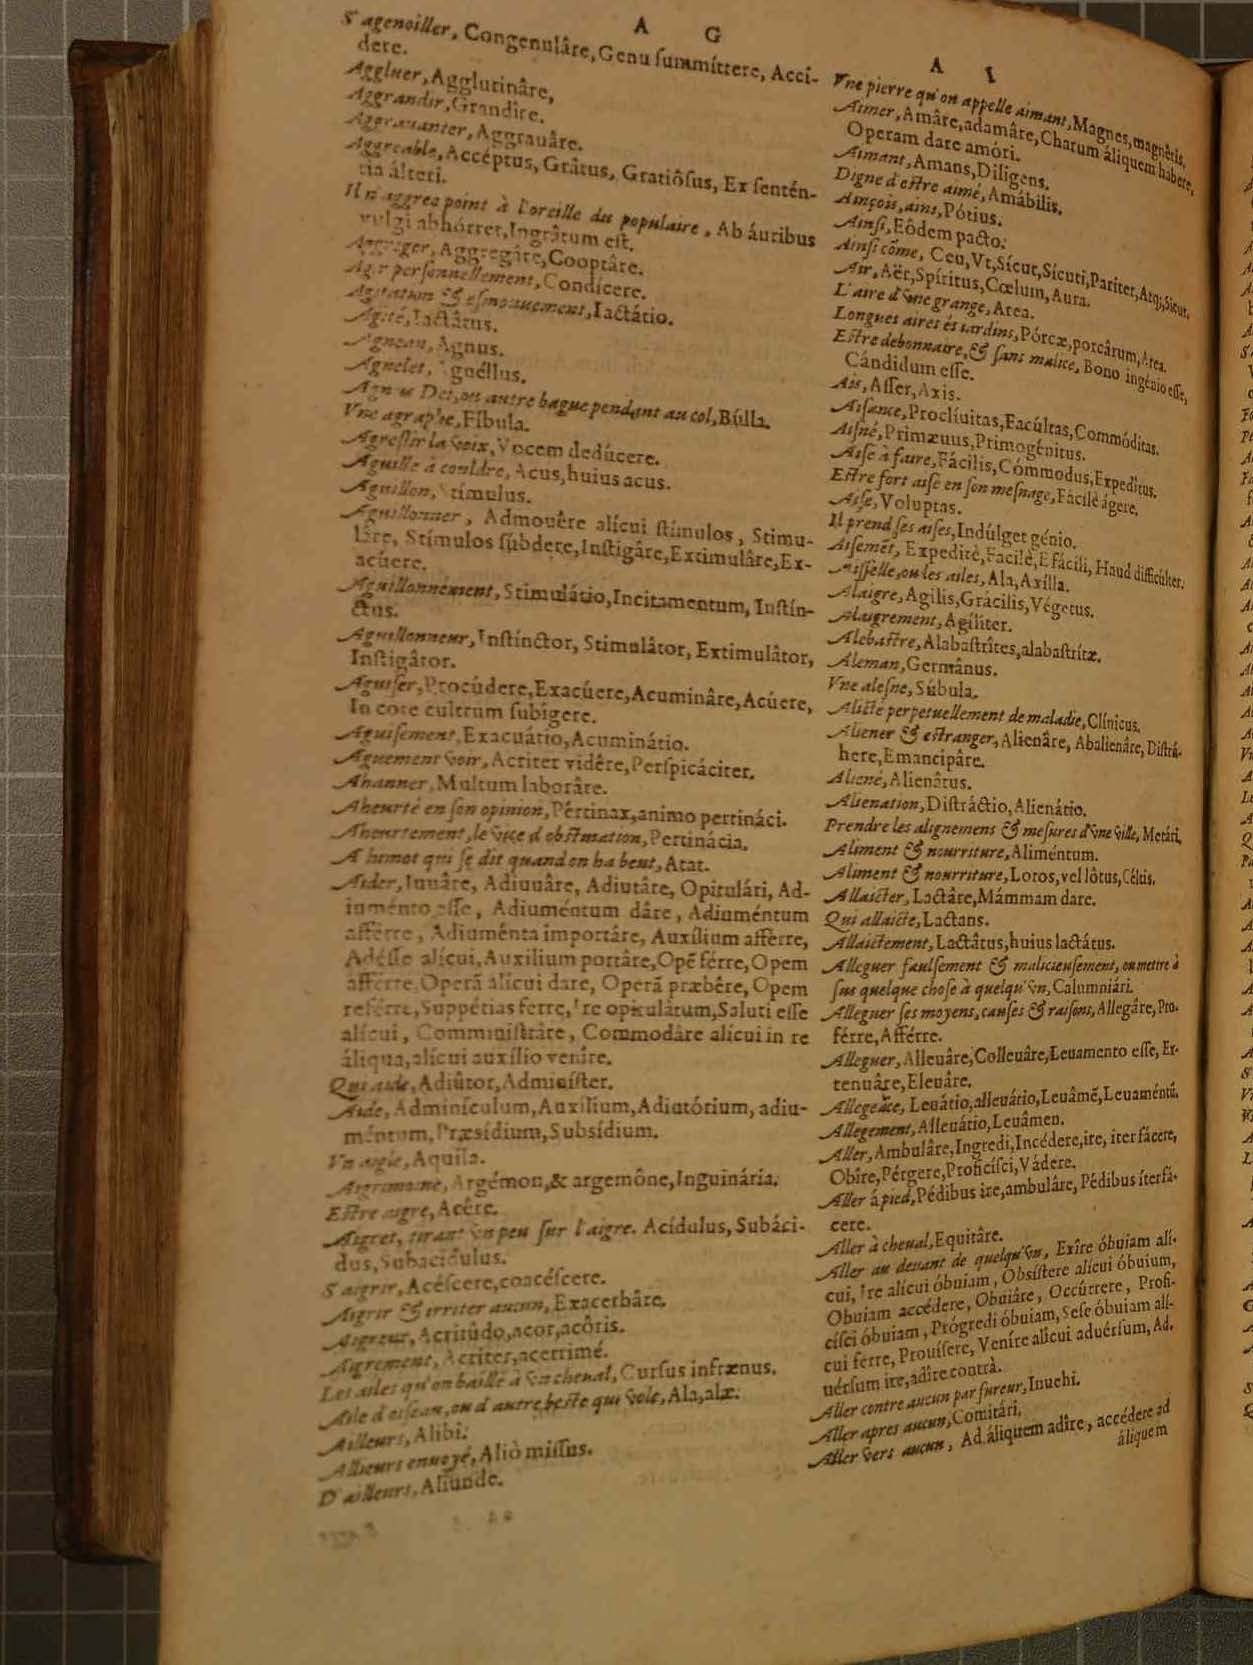 A G
S'agenoiller, Congenulâre, Genu ſummíttere, Acci-
dere.
Aggluer, Agglutinâre,
Aggrandir, Grandîre.
Aggrauanter, Aggrauâre.
Aggreable, Accéptus, Grâtus, Gratiôſus, Ex ſentén-
tia álteri.
Il n'aggree point à l'oreille du populaire, Ab áuribus
vulgi abhórret, Ingrâtum eſt.
Aggreger, Aggregâre, Cooptâre.
Agir perſonnellement, Condícere.
Agitation & eſmouuement, Iactátio.
Agité, Iactâtus.
Agneau, Agnus.
Agnelet, Agnéllus.
Agnus Dei, ou autre bague pendant au col, Búlla.
Vne agraphe, Fíbula.
Agreſlir la voix, Vocem dedúcere.
Aguille à couldre, Acus, huius acus.
Aguillon, Stímulus.
Aguillonner, Admouêre alícui ſtímulos, Stimu-
lâre, Stímulos ſúbdere, Inſtigâre, Extimulâre, Ex-
acúere.
Aguillonnement, Stimulátio, Incitamentum, Inſtín-
ctus.
Aguillonneur, Inſtínctor, Stimulâtor, Extimulâtor,
Inſtigâtor.
Aguiſer, Procúdere, Exacúere, Acuminâre, Acúere,
In cote cultrum ſubígere.
Aguiſement, Exacuátio, Acuminátio.
Aguement voir, Acriter vidêre, Perſpicáciter.
Ahanner, Multum laborâre.
Aheurté en ſon opinion, Pértinax, animo pertináci.
Aheurtement, le vice d'obſtination, Pertinácia.
A' humot qui ſe dit quand on ha beut, Atat.
Aider, Iuuâre, Adiuuâre, Adiutâre, Opitulári, Ad-
iuménto eſſe, Adiuméntum dâre, Adiuméntum
afférre, Adiuménta importâre, Auxílium afférre,
Adéſſe alícui, Auxilium portâre, Opē férre, Opem
afférre, Operā álicui dare, Operā præbêre, Opem
reférre, Suppétias ferre, Ire opitulâtum, Saluti eſſe
alícui, Comminiſtrâre, Commodâre alícui in re
áliqua, alícui auxílio venîre.
Qui aide, Adiûtor, Adminíſter.
Aide, Adminículum, Auxílium, Adiutórium, adiu-
méntum, Præsídium, Subsídium.
Vn aigle, Aquila.
Aigrimoine, Argémon, & argemône, Inguinária.
Eſtre aigre, Acêre.
Aigret, tirant vn peu ſur l'aigre. Acídulus, Subáci-
dus, Subacídulus.
S'aigrir, Acéſcere, coacéſcere.
Aigrir & irriter aucun, Exacerbâre.
Aigreur, Acritûdo, acor, acôris.
Aigrement, Acriter, acerrimé.
Les ailes qu'on baille à vn cheual, Curſus infrænus.
Aile d'oiſeau, ou d'autre beſte qui vole, Ala, alæ.
Ailleurs, Alibi.
Allieurs enuoyé, Aliò miſſus.
D'ailleurs, Aliunde.
A I
Vne pierre qu'on appelle aimant, Magnes, magnêtis.
Aimer, Amâre, adamâre, Charum áliquem habere,
Operam dare amóri.
Aimant, Amans, Diligens.
Digne d'eſtre aimé, Amábilis.
Ainçois, ains, Pótius.
Ainſi, Eôdem pacto.
Ainſi cōme, Ceu, Vt, Sícut, Sícuti, Pariter, Atq;, Sicut.
Air, Aër, Spíritus, Cœlum, Aura.
L'aire d'vne grange, Area.
Longues aires és iardins, Pórcæ, porcârum, Area.
Eſtre debonnaire, & ſans malice, Bono ingénio eſſe,
Cándidum eſſe.
Ais, Aſſer, Axis.
Aiſance, Proclíuitas, Facúltas, Commóditas.
Aiſné, Primæuus, Primogénitus.
Aiſe à faire, Fácilis, Cómmodus, Expedîtus.
Eſtre fort aiſe en ſon meſnage, Fácilè ágere.
Aiſe, Voluptas.
Il prend ſes aiſes, Indúlget génio.
Aiſemēt, Expeditè, Facilè, E fácili, Haud difficúlter.
Aiſſelle, ou les ailes, Ala, Axílla.
Alaigre, Agilis, Grácilis, Végetus.
Alaigrement, Agíliter.
Alebaſtre, Alabaſtrîtes, alabaſtrítæ.
Aleman, Germânus.
Vne aleſne, Súbula.
Alicté perpetuellement de maladie, Clínicus.
Aliener & eſtranger, Alienâre, Abalienâre, Diſtrá-
here, Emancipâre.
Aliené, Alienâtus.
Alienation, Diſtráctio, Alienátio.
Prendre les alignemens & meſures d'vne ville, Metári.
Aliment & nourriture, Aliméntum.
Aliment & nourriture, Lotos, vel lôtus, Céltis.
Allaicter, Lactâre, Mámmam dare.
Qui allaicte, Lactans.
Allaictement, Lactâtus, huius lactátus.
Alleguer faulſement & malicieuſement, ou mettre à
ſus quelque choſe à quelqu'vn, Calumniári.
Alleguer ſes moyens, cauſes & raiſons, Allegâre, Pro-
férre, Afférre.
Alleguer, Alleuâre, Colleuâre, Leuamento eſſe, Ex-
tenuâre, Eleuâre.
Allegeāce, Leuátio, alleuátio, Leuâmē, Leuaméntū.
Allegement, Alleuátio, Leuâmen.
Aller, Ambulâre, Ingredi, Incédere, ire, iter fácere,
Obîre, Pérgere, Proficíſci, Vádere.
Aller á pied, Pédibus ire, ambulâre, Pédibus íter fá-
cere.
Aller à cheual, Equitâre.
Aller au deuant de quelqu'vn, Exîre óbuiam alí-
cui, Ire alícui óbuiam, Obsíſtere alícui óbuium,
Obuiam accédere, Obuiâre, Occúrrere, Profi-
císci óbuiam, Prógredi óbuiam, Seſe óbuiam alí-
cui férre, Prouíſere, Veníre alícui aduérſum, Ad-
uérſum ire, adîre contrà.
Aller contre aucun par fureur, Inuehi.
Aller apres aucun, Comitári.
Aller vers aucun, Ad áliquem adîre, accédere ad
áliquem